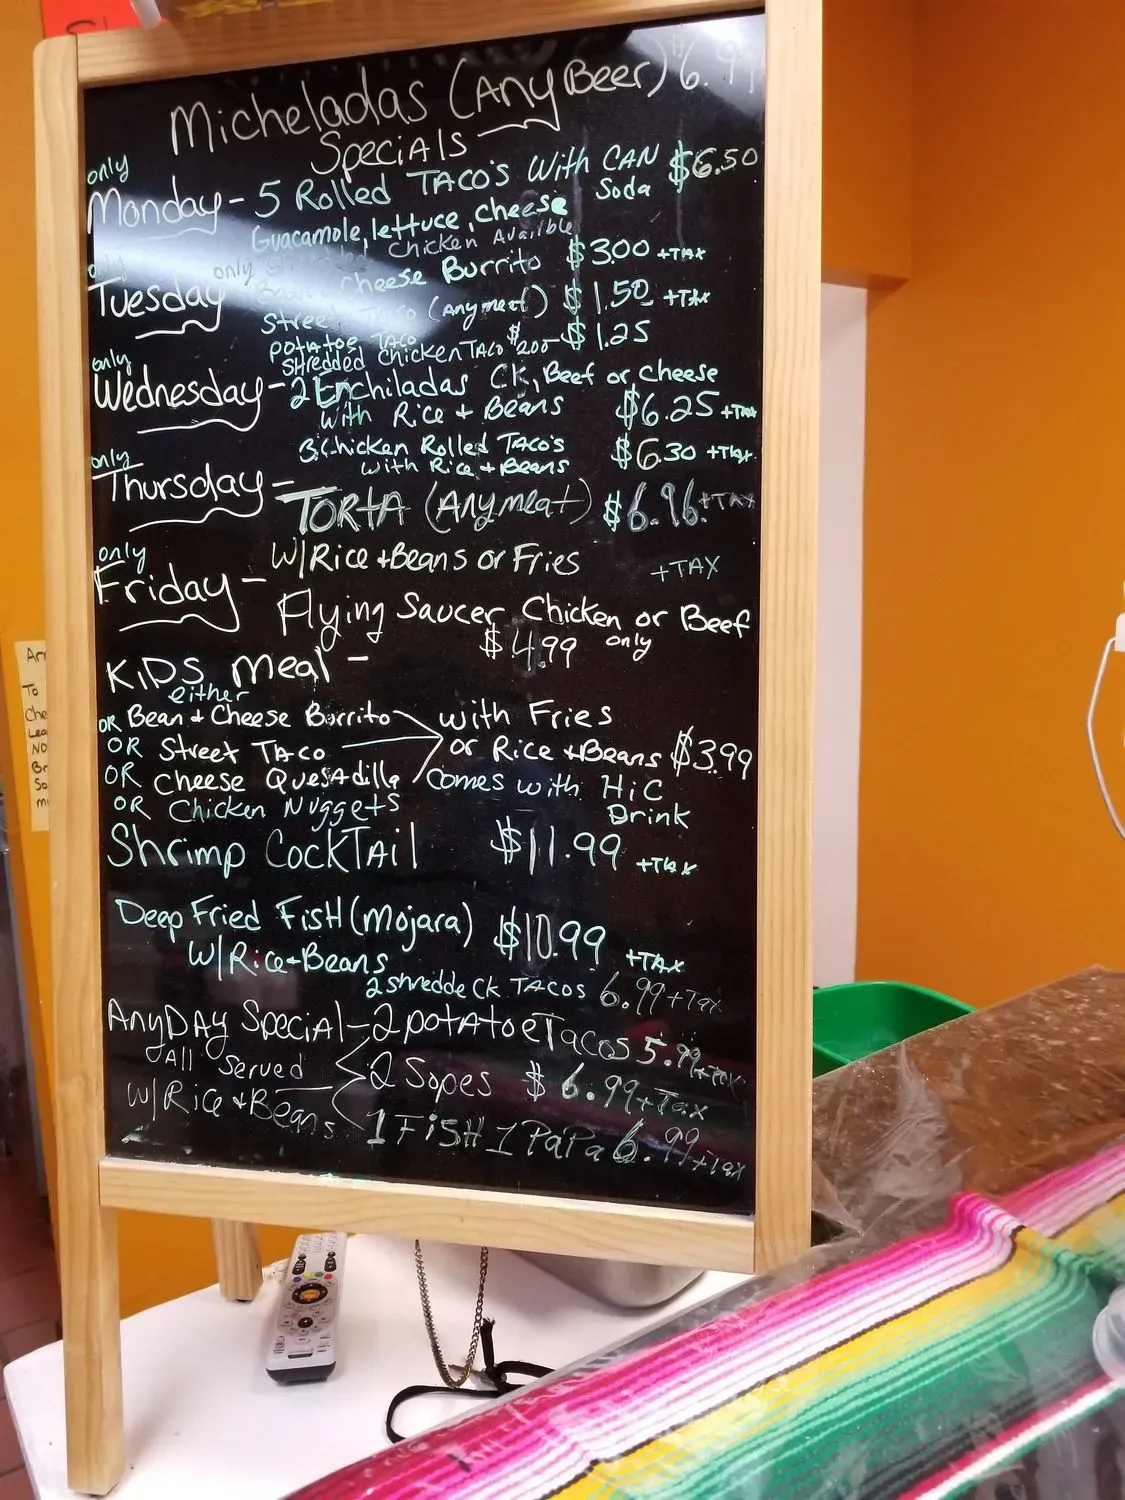 Micheladas (Any Beer) $6.99
Specials
only
Monday - 5 Rolled TACO's With CAN Soda $6.50
Guacamole, lettuce, cheese
Shredded Chicken Availble
only
Tuesday only Bean & cheese Burrito $3.00 +TAX
Street Taco (Any meat) $1.50 +TAX
potatoe Taco $1.25
Shredded Chicken TACO $2.00
only
Wednesday - 2 Enchiladas CK, Beef or cheese
with Rice + Beans $6.25 +TAX
3 Chicken Rolled TACO's $6.30 +TAX
with Rice + Beans
only
Thursday - TORTA (Any meat) $6.96 +TAX
W/Rice + Beans or Fries +TAX
only
Friday - Flying Saucer Chicken or Beef
$4.99 only
KIDS meal -
either
OR Bean + Cheese Borrito with Fries
OR Street TACO or Rice + Beans $3.99
OR Cheese QuesAdilla comes with HiC
OR Chicken Nuggets Drink
Shrimp CockTAil $11.99 +TAX
Deep Fried FisH (Mojara) $10.99
W/Rice + Beans +TAX
2 shredde CK TACOS 6.99 + Tax
AnyDAy SpeciAl - 2 potAtoe Tacos 5.99 + Tax
All Served 2 Sopes $6.99 + Tax
W/Rice + Beans 1 FiSH 1 PaPa 6.99 + Tax
An
To
Che
Lea
NO
Br
So
m